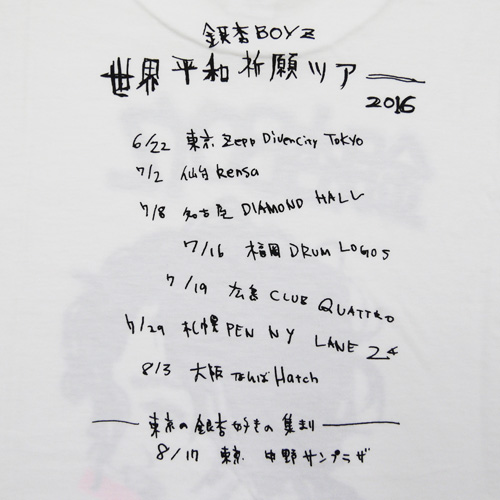 銀杏BOYZ
世界平和祈願ツアー
2016
6/22 東京 Zepp Divercity TOKYO
7/2 仙台 Rensa
7/8 名古屋 DIAMOND HALL
7/16 福岡 DRUM LOGOS
7/19 広島 CLUB QUATTRO
7/29 札幌 PENNY LANE 24
8/3 大阪 なんば Hatch
東京の銀杏好きの集まり
8/17 東京 中野サンプラザ